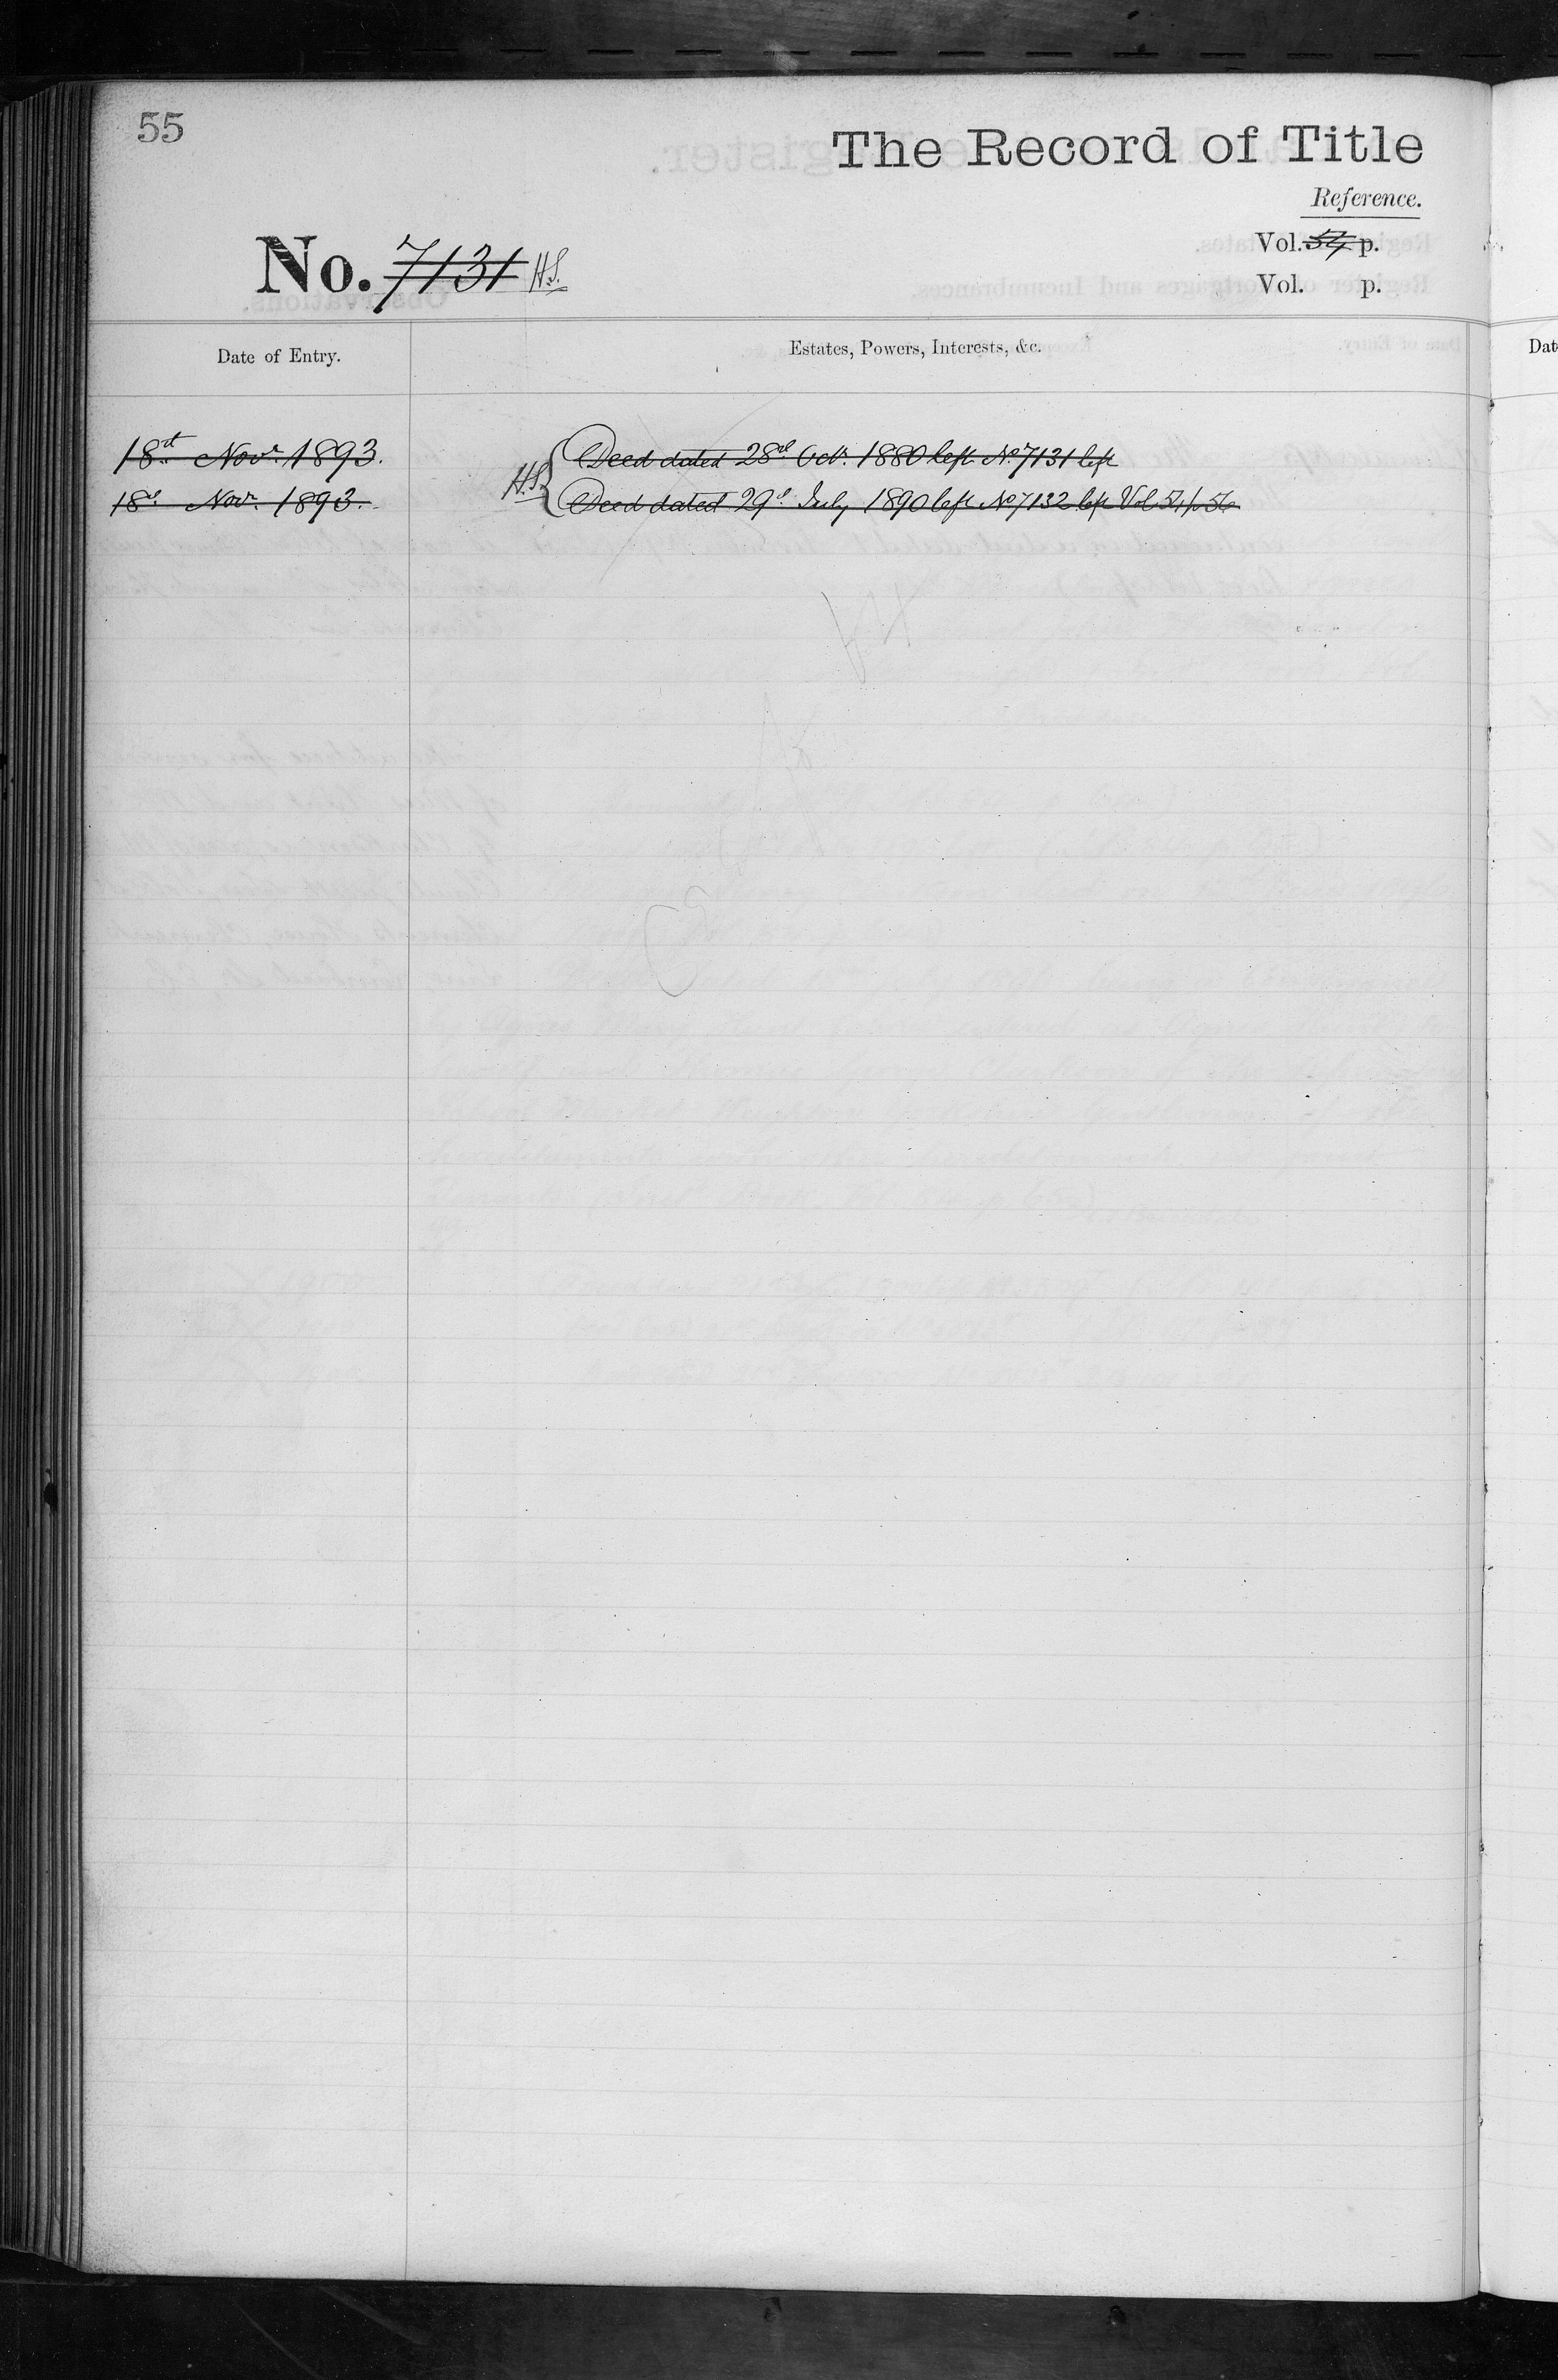 55
The Record of Title
Reference.
Vol. 54 p.
No. 7131 H.S.
Vol. p.
Date of Entry.
Estates, Powers, Interests, &c.
18th Novr. 1893.
Deed dated 28th Octr. 1880 left No 7131 left
H.S.
18th Novr. 1893.
Deed dated 29th July 1890 left No 7132 left Vol 54 p 56
Dat